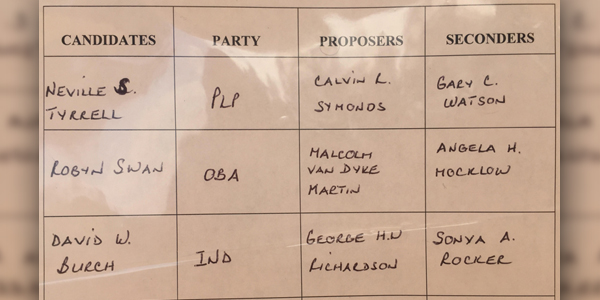 CANDIDATES PARTY PROPOSERS SECONDERS
NEVILLE S. PLP CALVIN L. GARY C.
TYRRELL SYMONDS WATSON
ROBYN SWAN OBA MALCOLM ANGELA H.
VAN DYKE MOCKLOW
MARTIN
DAVID W. IND GEORGE H.W SONYA A.
BURCH RICHARDSON ROCKER